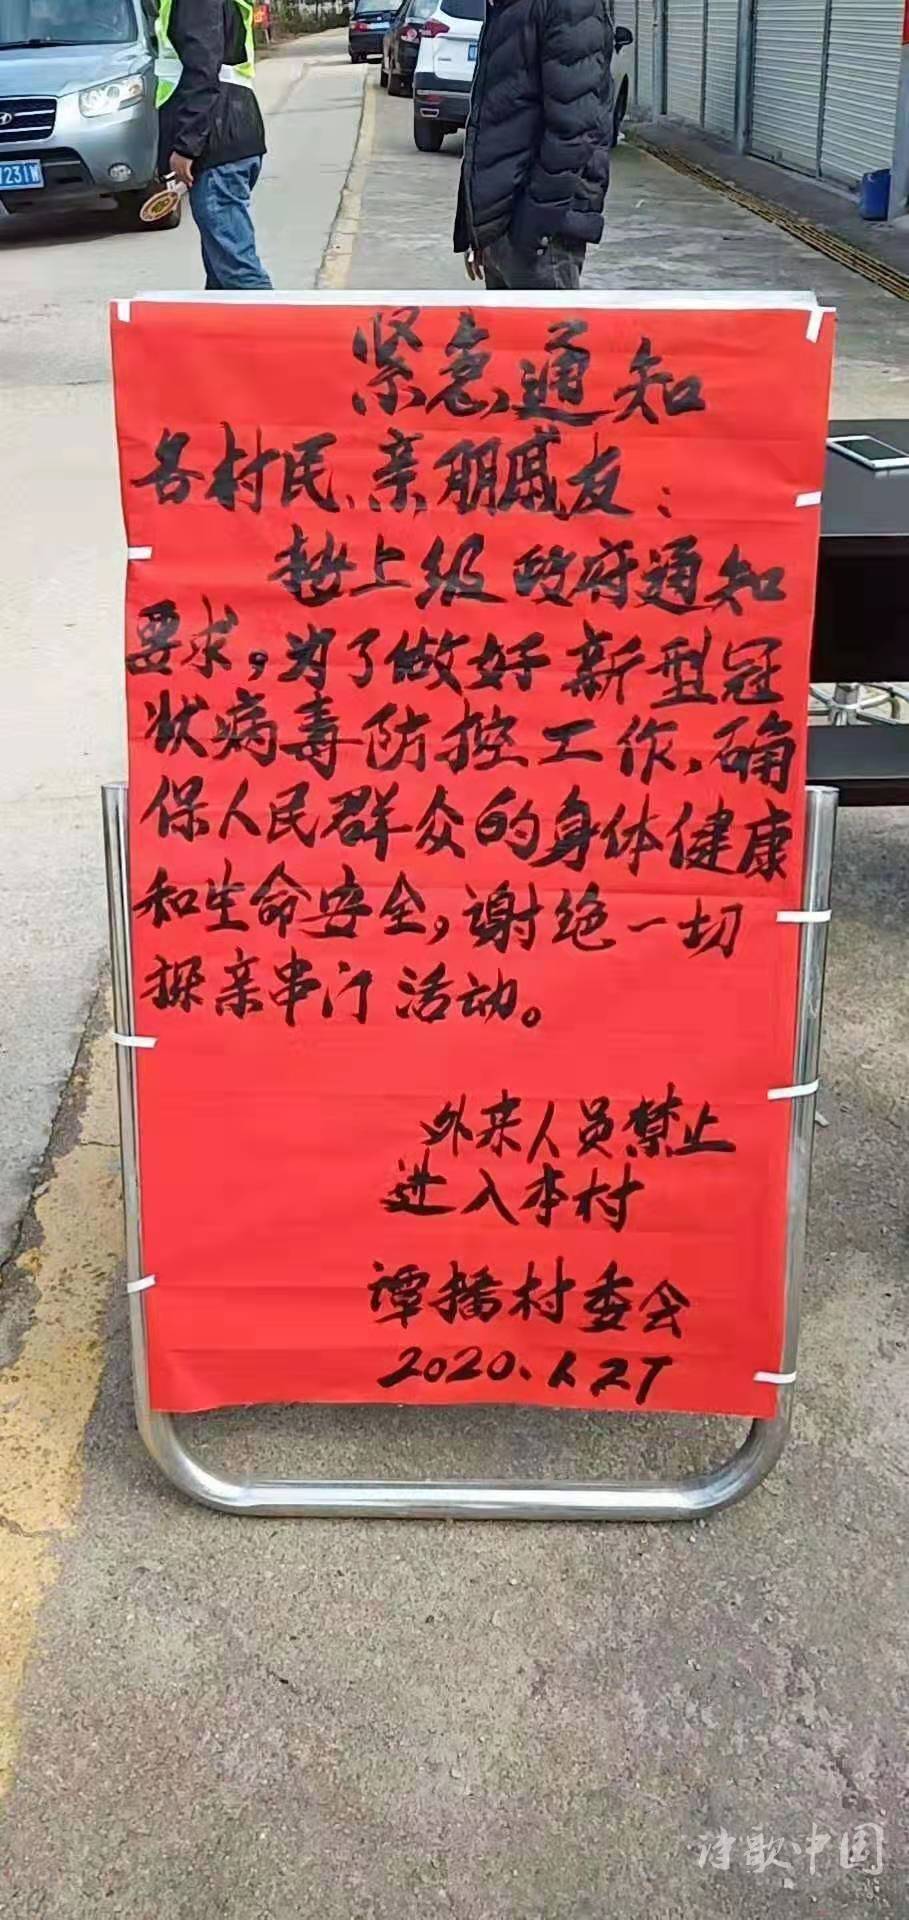 紧急通知
各村民、亲朋戚友：
按上级政府通知
要求，为了做好新型冠
状病毒防控工作，确
保人民群众的身体健康
和生命安全，谢绝一切
探亲串门活动。
外来人员禁止
进入本村
谭播村委会
2020.1.27
诗歌中国